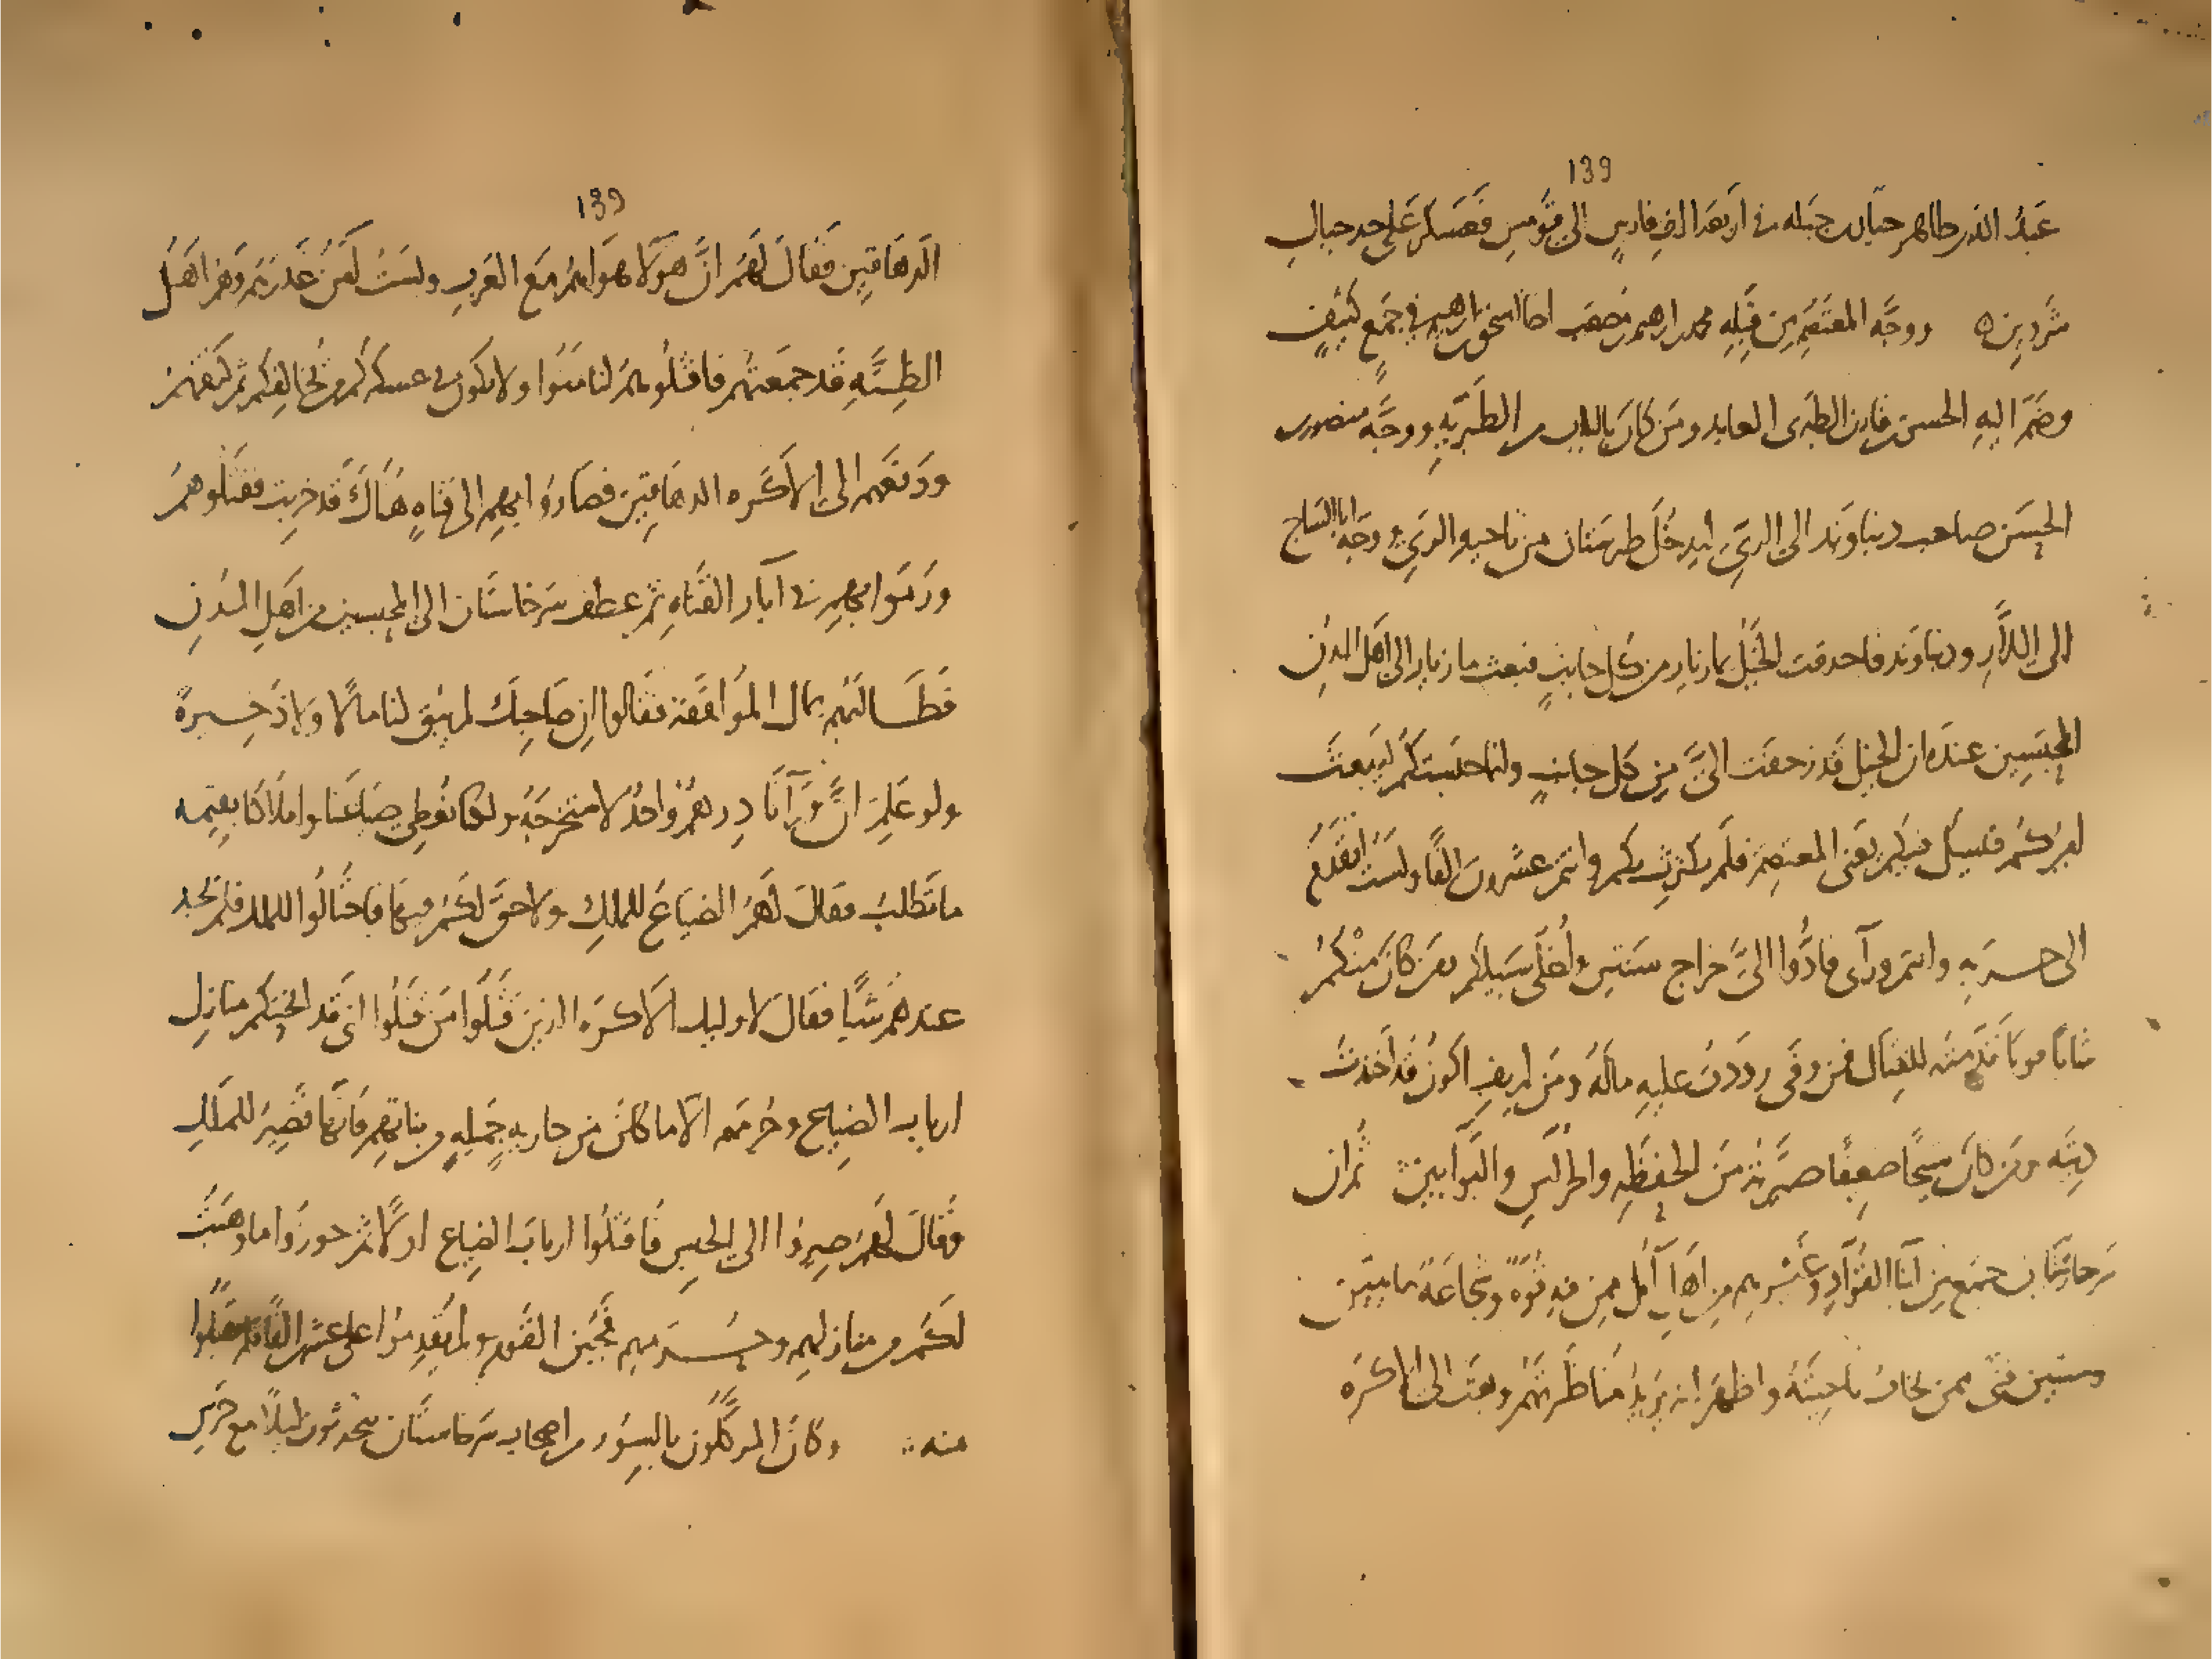 139
عَبْدُ الله بن طاهر حيان بن جبله في اربعة الف فارسٍ الى قومس فعَسكر عَلى حد جبال
شَروِين ه ووجَّه المعتَصِم من قِبَلِهِ محمد بن ابرهيم بن مُصعَب اخا اسحق بن ابرهيم في جَمعٍ كثيفٍ
وضَمَّ اليهِ الحسن بن قارن الطبَرى العابد ومَن كانَ بالباب من الطَبَريّةِ ووجَّه منصور بن
الحسَن صاحب دنباوَند الى الريّ ليدخُلَ طبرستان من ناحيهِ الرَيّ ووجَّه ابا الساج
الى اللارِ ودنباوَند فاحدقت الخَيْلُ بمازيار من كل جانبٍ فبعث مازيار الى اهل المدُن
المحبَسِين عندَه ان الخيل قد زحفَت اليَّ مِن كل جانبٍ وانما حبَستكُم ليَبعثَ
اليَّ حَربه وانتم ورآى فادُّوا اليَّ خراج سنتين واُخلّى سَبيلكُم ومَن كانَ منْكمُ
شابًا قويًا قدّمتُه للقتال فمن وفى رددتُ عليهِ مالَهُ ومَن لم يفِ اكونُ قد اخذتُ
دِيتَه ومَن كانَ شيخًا ضعيفًا صيَّرتُه مِنَ الحفظَهِ والحرَّاسِ والبَوّابين ثُم ان
سَرخاسْتان جمَع مِن ابنا القُوّادِ وغَيرهم مِن اَهلِ آمُل ممن فيه قُوّةٌ وشجاعَةٌ مايتين
وستين فتًى ممن يخاف ناحِيَتَهُ واظهَر انه يُريدُ مُناظَرتَهُم وبعَثَ الى الاكَرَه
139
الدهَاقِين فقَالَ لهُم انَّ هؤلا هواهُم مَع العَرب ولستُ آمَنُ غَدرَهُم وهم اهَل
الظِنَّهِ قَد جمَعتهُم فاقتلُوهم لتامنُوا ولا يكون في عسكركُم من يُخالفكُم ثم كتفهُم
ودَفعَهم الى الاكَرَه الدهَاقِين فصَاروُا بهِم الى قناهٍ هُناكَ قد خربت فقتَلُوهمُ
ورَمَوا بِهم في آبار القَناهِ ثم عطف سَرخاستَان الى المحبسين من اَهلِ المدُنِ
فطَالبَهم بمال الموافقَة فقالوا ان صَاحِبَك لم يُبقِ لنا مالًا ولا ذخِيرةً
ولو عَلِمَ انَّ وَرآنَا دِرهَمٌ واحدٌ لاستخرجَهُ ولكنا نُعطى ضِياعَنا واملاكَنا بقيمه
ما تَطلب فقالَ لهُم الضياعَ للملِكِ ولا حقَّ لكُم فيها فاحتَالُوا للمال فلم يجد
عندهُم شيًا فقالَ لاوليك الاكرَه الذينَ قتَلُوا مَن قتلُوا انى قَد ابحتكم منازل
ارباب الضِياع وحُرمَهم الا ما كانَ مِن جاريهٍ جَميلهٍ من بناتهِم فانّها تَصِيرُ للملكِ
وقالَ لهُم صِيرُوا الى الحبِس فاقتلُوا اربابَ الضِياع اولًا ثم حوزُوا ما وهَبتُ
لكُم من منازلهم وحُرَمهم فجَبُنَ القَوم ولم يُقدِموُا على عشرين الفًا فلم يَقبلُوا
منه وكانَ الموكّلُون بالسورِ من اصحاب سَرخاستَان يتحدثون ليلًا مع حَرَس